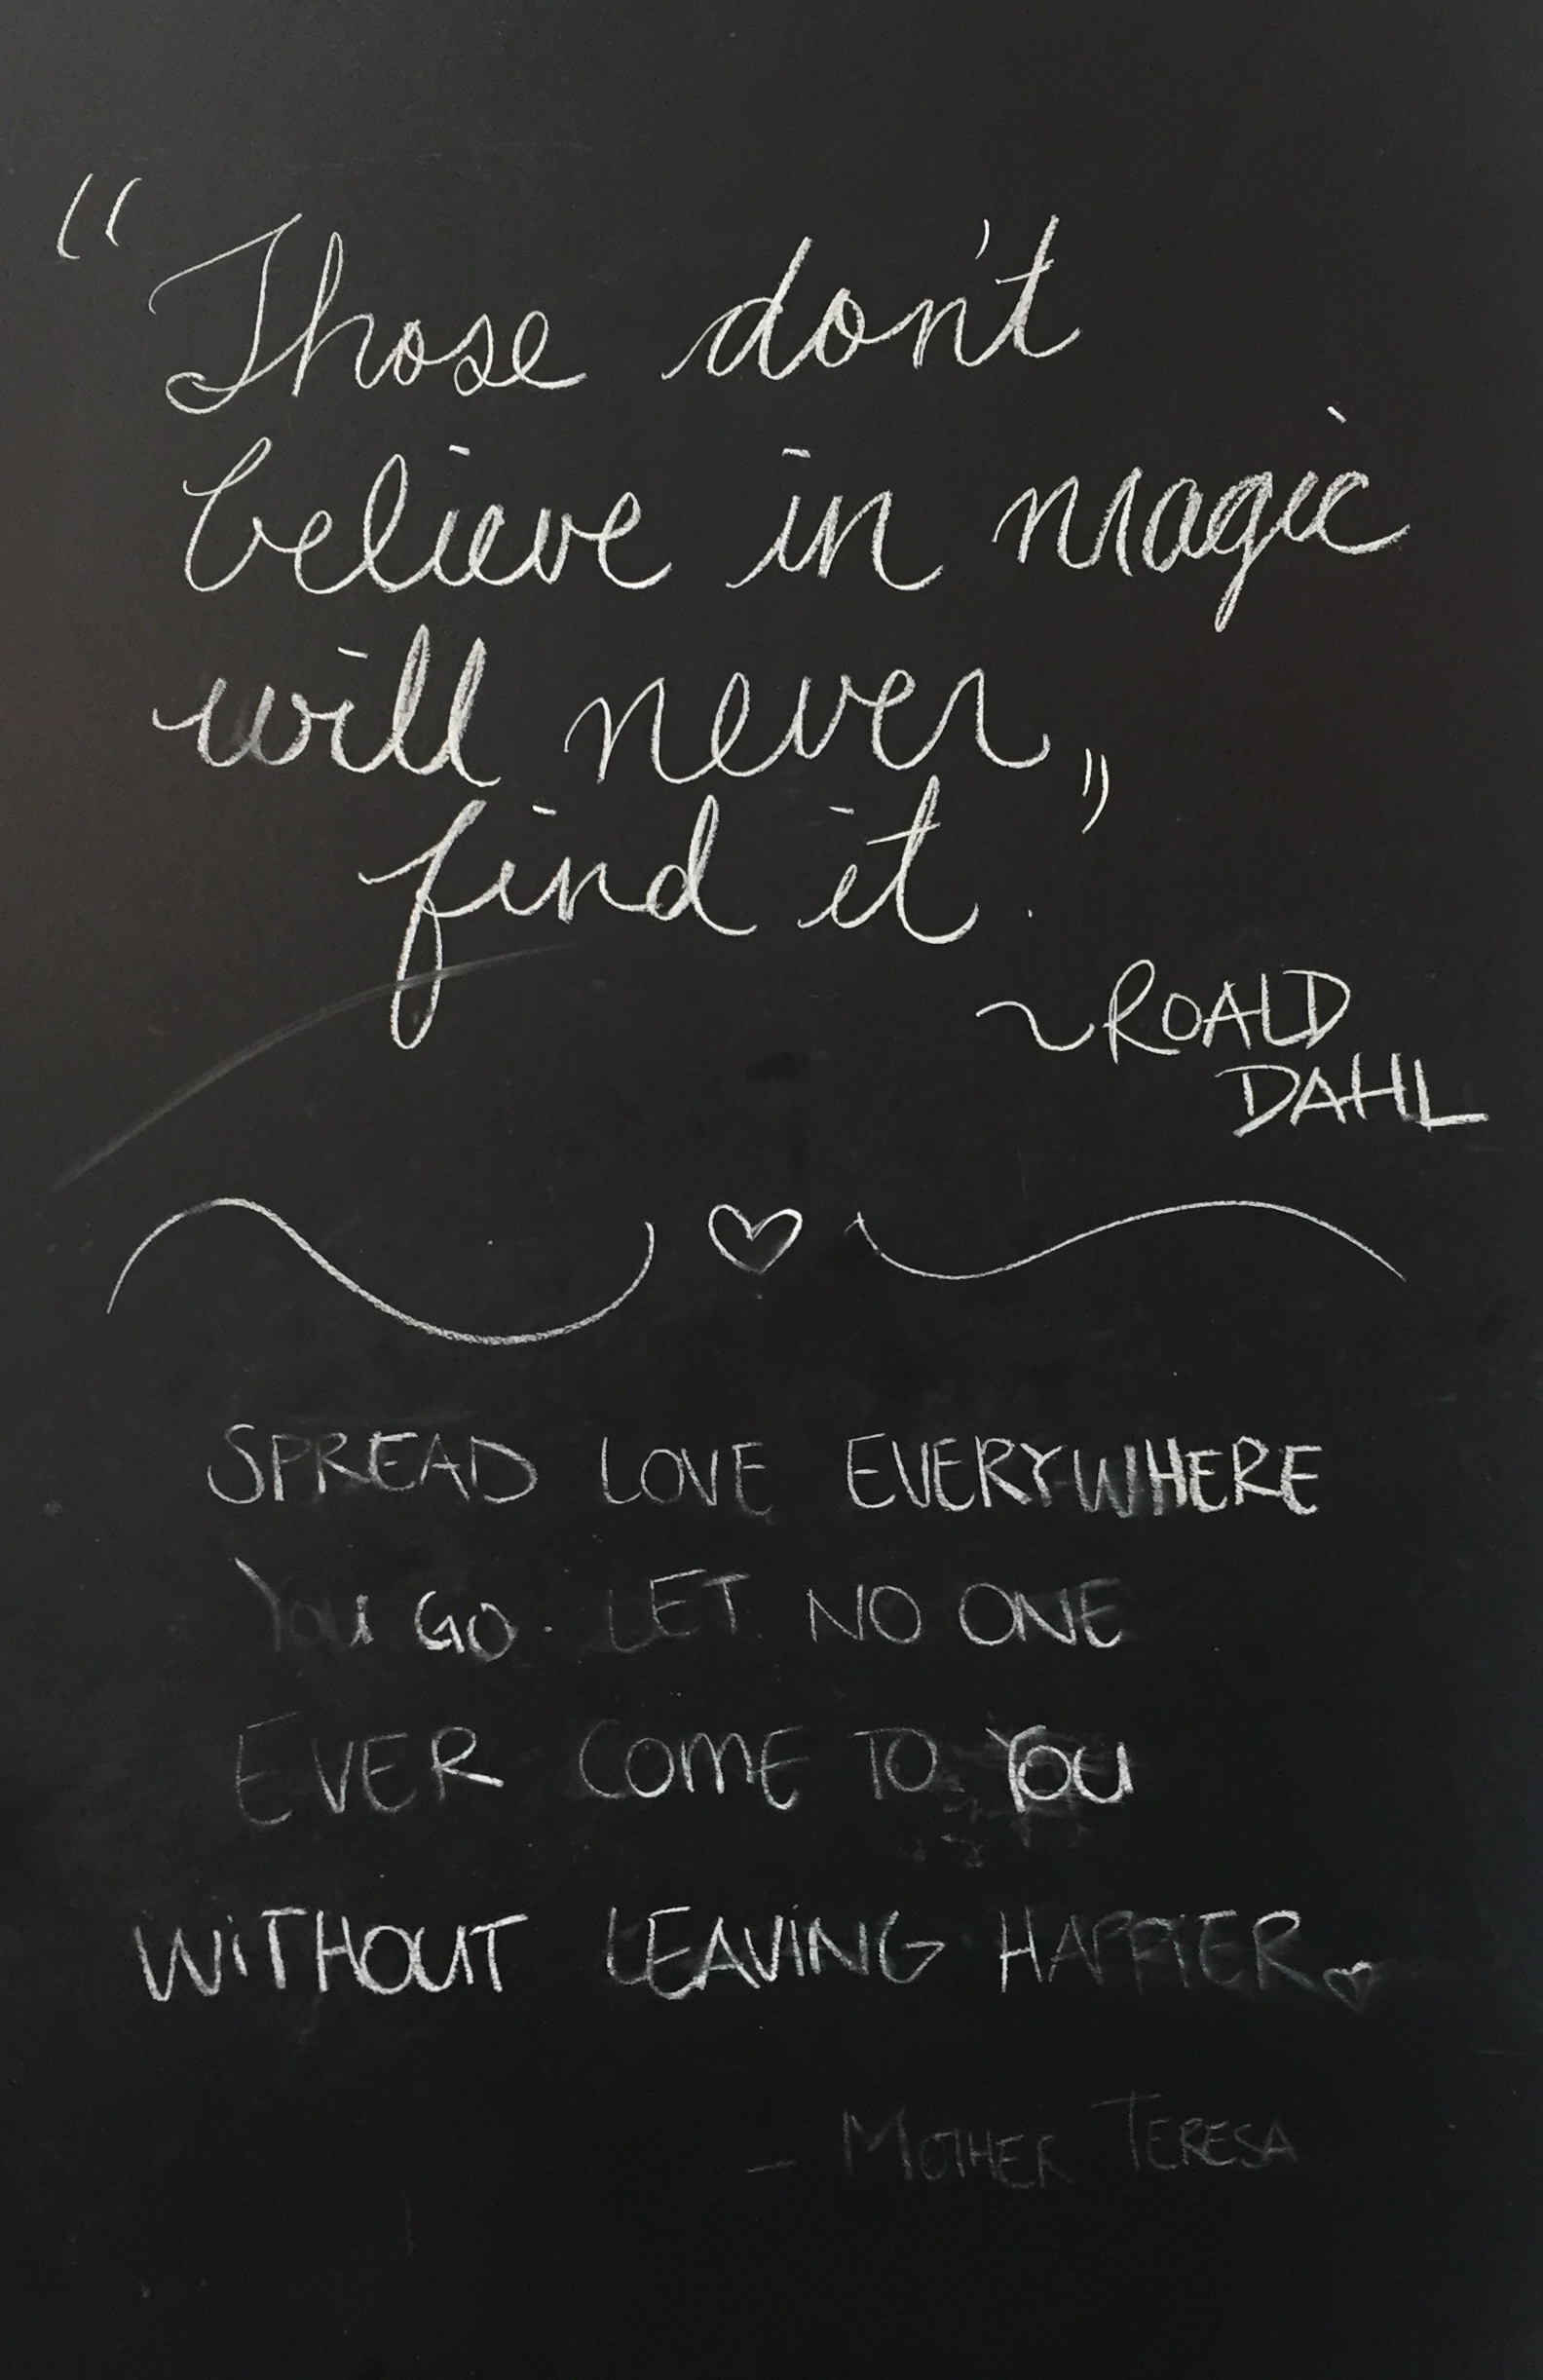 "Those don't
believe in magic
will never
find it."
~ROALD
DAHL
SPREAD LOVE EVERYWHERE
YOU GO. LET NO ONE
EVER COME TO YOU
WITHOUT LEAVING HAPPIER
- MOTHER TERESA